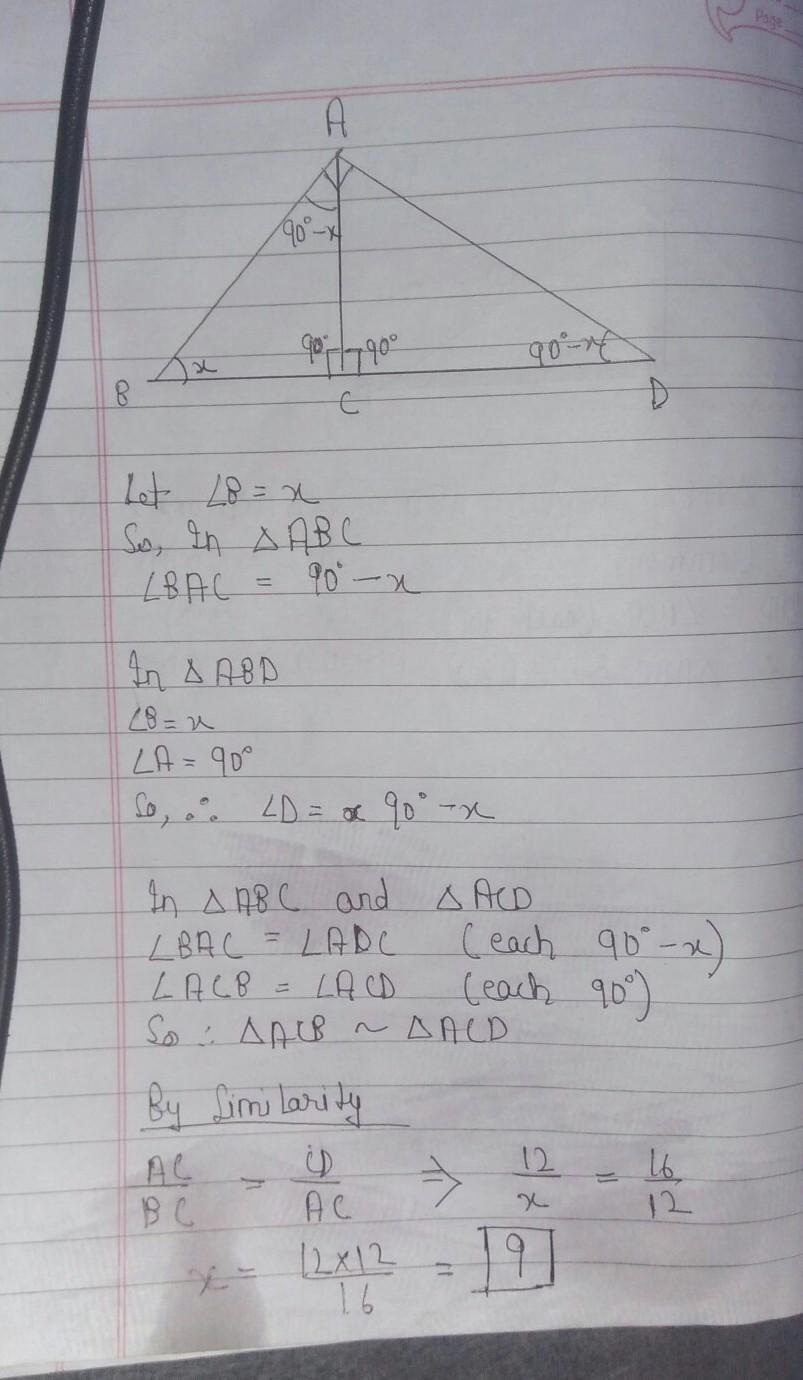 Page
A
90°-x
90° 90°
90°-x
x
B
C
D
Let ∠B = x
So, In △ABC
∠BAC = 90° - x
In △ABD
∠B = x
∠A = 90°
So, ∴ ∠D = 90° - x
In △ABC and △ACD
∠BAC = ∠ADC (each 90° - x)
∠ACB = ∠ACD (each 90°)
So ∴ △ACB ~ △ACD
By Similarity
AC/BC = CD/AC ⇒ 12/x = 16/12
x = 12×12/16 = 9